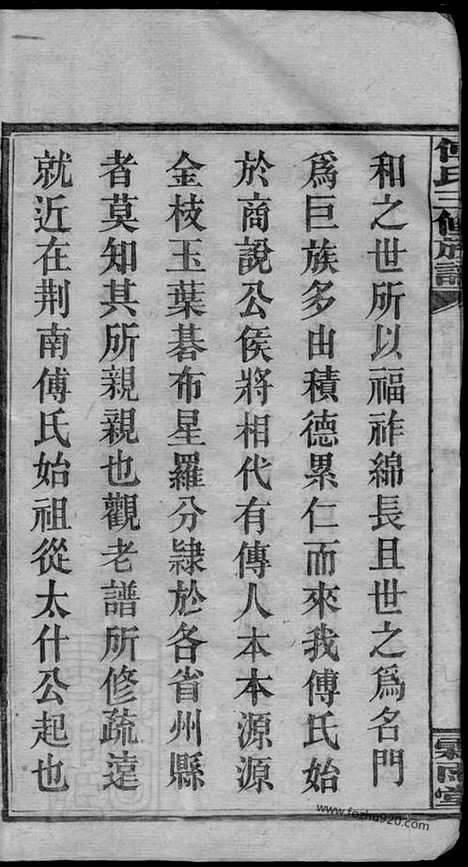 傅氏三修族譜
和之世所以福祚綿長且世之爲名門
爲巨族多由積德累仁而來我傅氏始
於商說公侯將相代有傳人本本源源
金枝玉葉碁布星羅分隸於各省州縣
者莫知其所親親也觀老譜所修疏遠
就近在荆南傅氏始祖從太什公起也
www.fozhu920.com